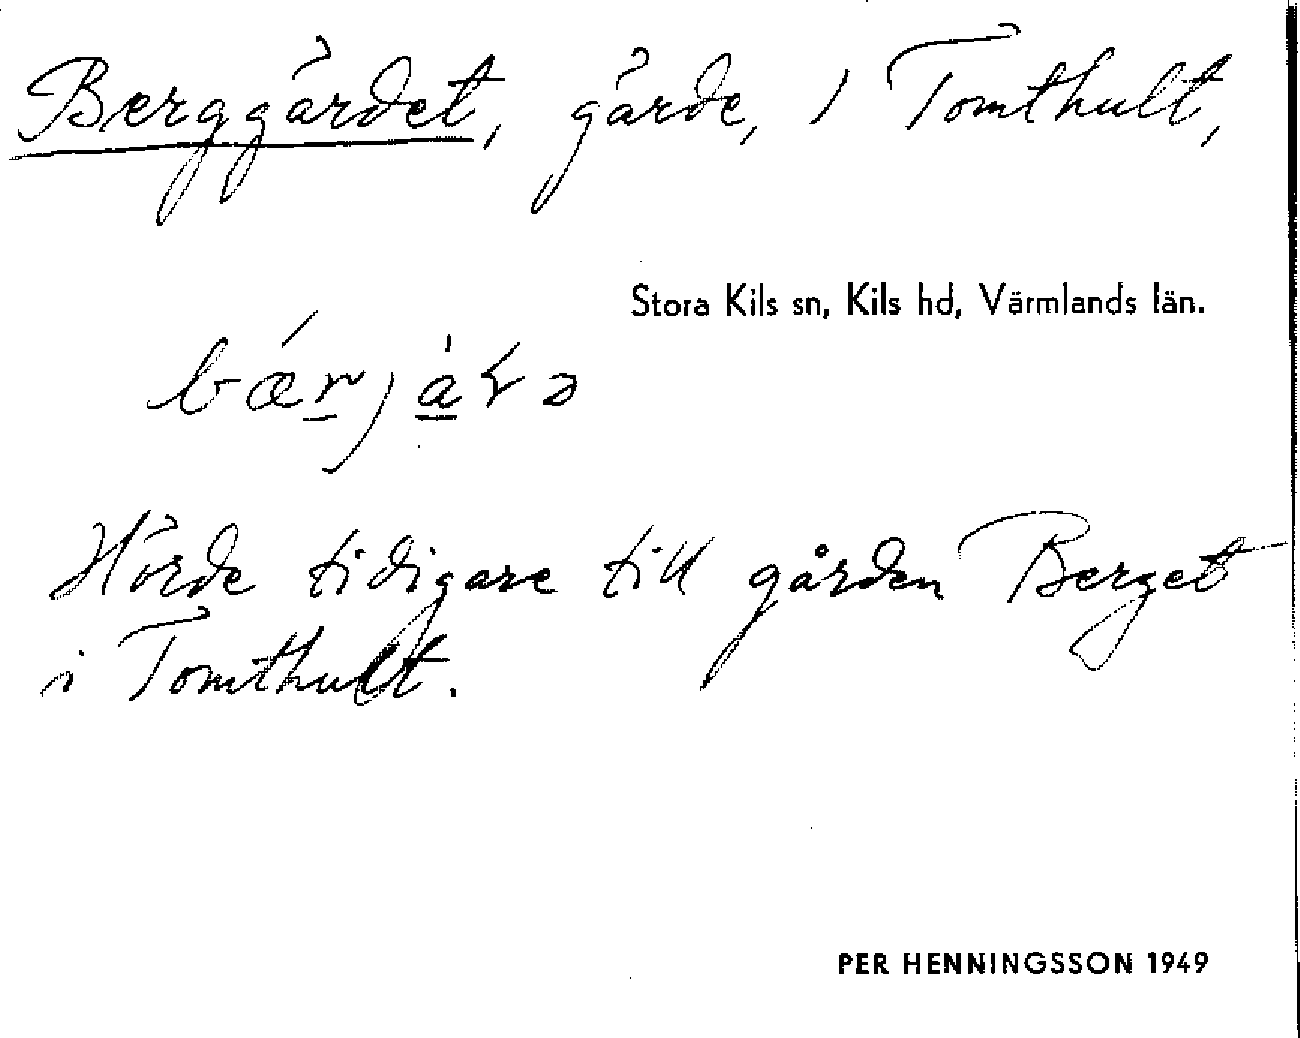 Berggärdet, gärde, i Tomthult,
Stora Kils sn, Kils hd, Värmlands län.
Hörde tidigare till gården Berget
i Tomthult.
PER HENNINGSSON 1949